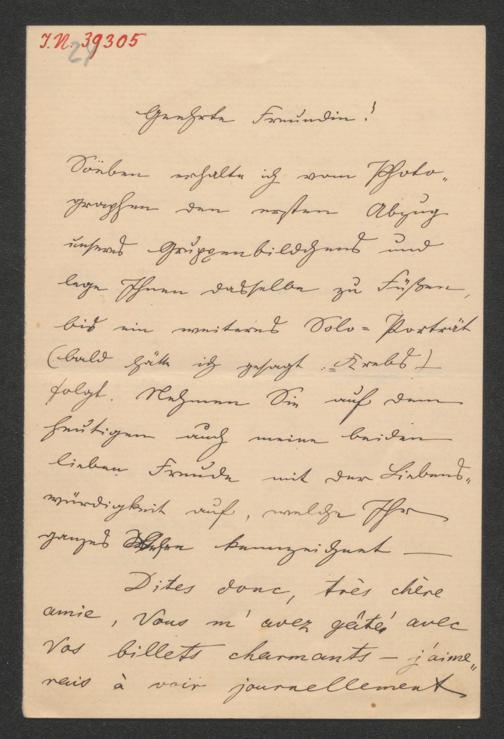 J.N. 39305
24
Geehrte Freundin!
Soëben erhalte ich vom Photo„
graphen den ersten Abzug
unseres Gruppenbildchens und
lege Ihnen dasselbe zu Füßen,
bis ein weiteres Solo=Porträt
(bald hätte ich gesagt: Krebs)
folgt. Nehmen Sie auf dem
heutigen auch meine beiden
lieben Freunde mit der Liebens„
würdigkeit auf, welche Ihr
ganzes Wesen kennzeichnet —
Dites donc, très chère
amie, Vous m'avez gâté avec
Vos billets charmants — j'aime„
rais à voir journellement